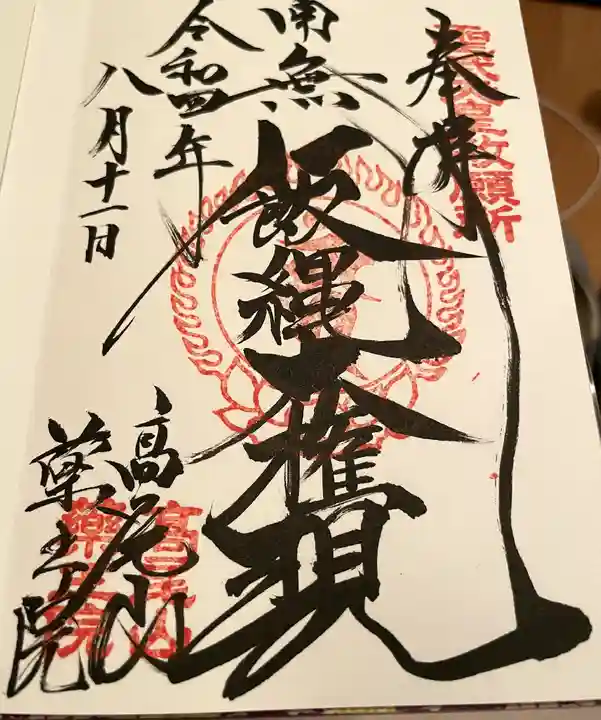 奉拝
南無
飯縄大権現
令和四年
八月十一日
高尾山
薬王院
高尾山
薬王院